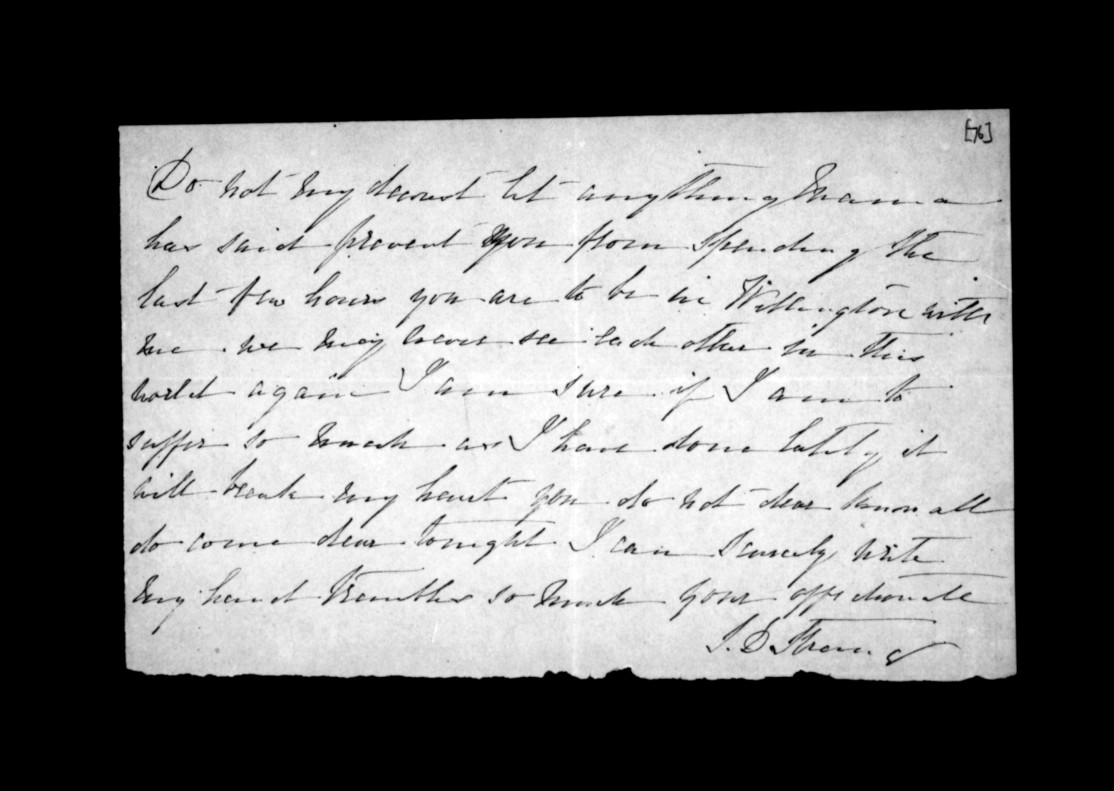 [76]
Do not my dearest let anything Mama
has said prevent you from spending the
last few hours you are to be in Wellington with
me. we may never see each other in this
world again I am sure if I am to
suffer so much as I have done lately it
will break my heart you do not dear know all
do come dear tonight I can scarcely write
my hand trembles so much your affectionate
S. D Strang